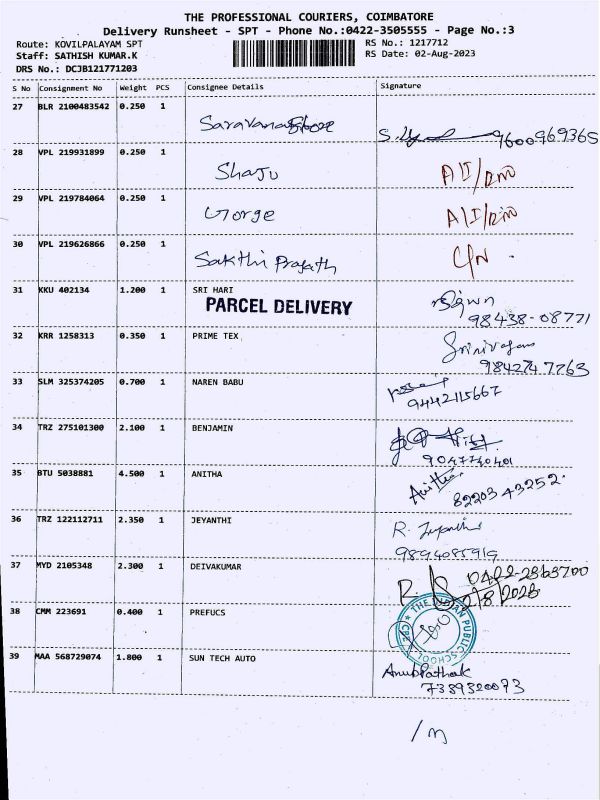 THE PROFESSIONAL COURIERS, COIMBATORE
Delivery Runsheet - SPT - Phone No.:0422-3505555 - Page No.:3
Route: KOVILPALAYAM SPT RS No.: 1217712
Staff: SATHISH KUMAR.K RS Date: 02-Aug-2023
DRS No.: DCJB121771203
S No Consignment No Weight PCS Consignee Details Signature
27 BLR 2100483542 0.250 1
Saravana Store 9600969365
28 VPL 219931899 0.250 1
Shaju
29 VPL 219784064 0.250 1
George
30 VPL 219626866 0.250 1
Sakthi Prajath
31 KKU 402134 1.200 1 SRI HARI
PARCEL DELIVERY 98438-08771
32 KRR 1258313 0.350 1 PRIME TEX
9842747263
33 SLM 325374205 0.700 1 NAREN BABU
9442115667
34 TRZ 275101300 2.100 1 BENJAMIN
9047740401
35 BTU 5038881 4.500 1 ANITHA Anitha
82203 43252.
36 TRZ 122112711 2.350 1 JEYANTHI R. Jeyanthi
9894085919
37 MYD 2105348 2.300 1 DEIVAKUMAR 0422-2363700
2/8/2023
38 CMM 223691 0.400 1 PREFUCS
THE INDIAN PUBLIC SCHOOL CBE
39 MAA 568729074 1.800 1 SUN TECH AUTO
Anub Pathak
7389320073